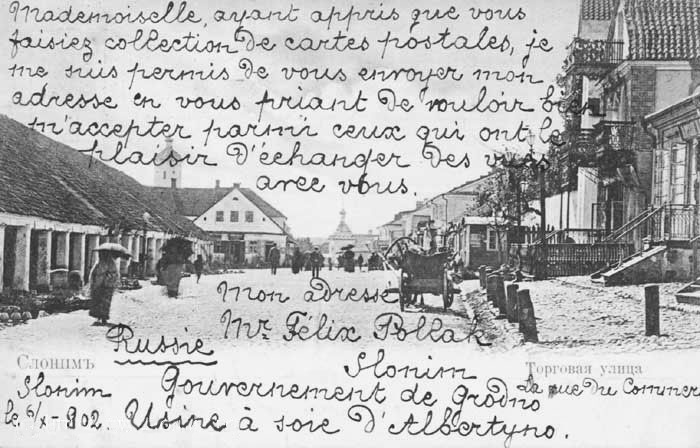 Mademoiselle, ayant appris que vous
faisiez collection de cartes postales, je
me suis permis de vous envoyer mon
adresse en vous priant de vouloir bien
m'accepter parmi ceux qui ont le
plaisir d'échanger des vues
avec vous.
Mon adresse
Mr. Félix Pollak
Слонимъ
Russie
Slonim
Торговая улица
Gouvernement de Grodno
La rue du Commer
Slonim
le 6/X - 902.
Usine à soie d'Albertyno.